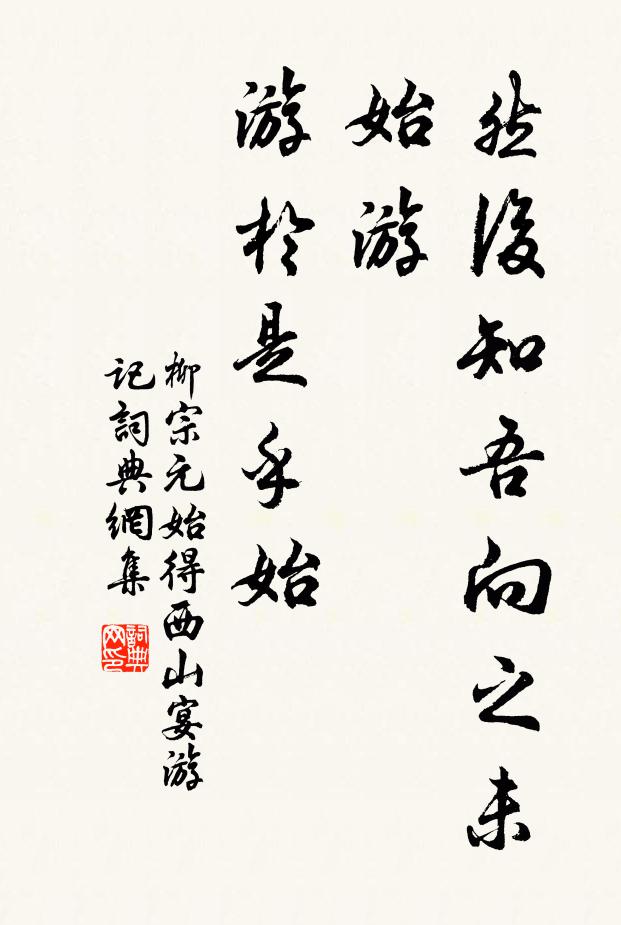 然後知吾向之未
始游
游於是乎始
柳宗元始得西山宴游
記詞典網集
詞典
网印